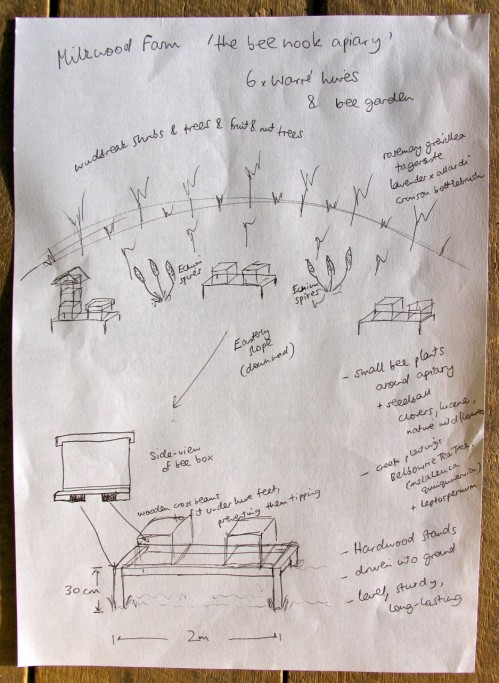 Milkwood Farm 'the bee nook apiary'
6 x Warré hives
& bee garden
windbreak shrubs & trees & fruit & nut trees
rosemary grevillea
tagasaste
lavender x allardi
crimson bottlebrush
Echium
spires
Echium
spires
Easterly
slope
(downward)
- small bee plants
around apiary
+ seedball
clovers, lucerne,
native wildflowers
Side-view
of bee box
- creek plantings
Belbourie Tea Tree
(melaleuca
quinquinervia)
+ leptospermum
wooden cross beams
to fit under hive feet,
preventing them tipping
- Hardwood stands
- driven into ground
- level, sturdy,
long-lasting
30cm
2m